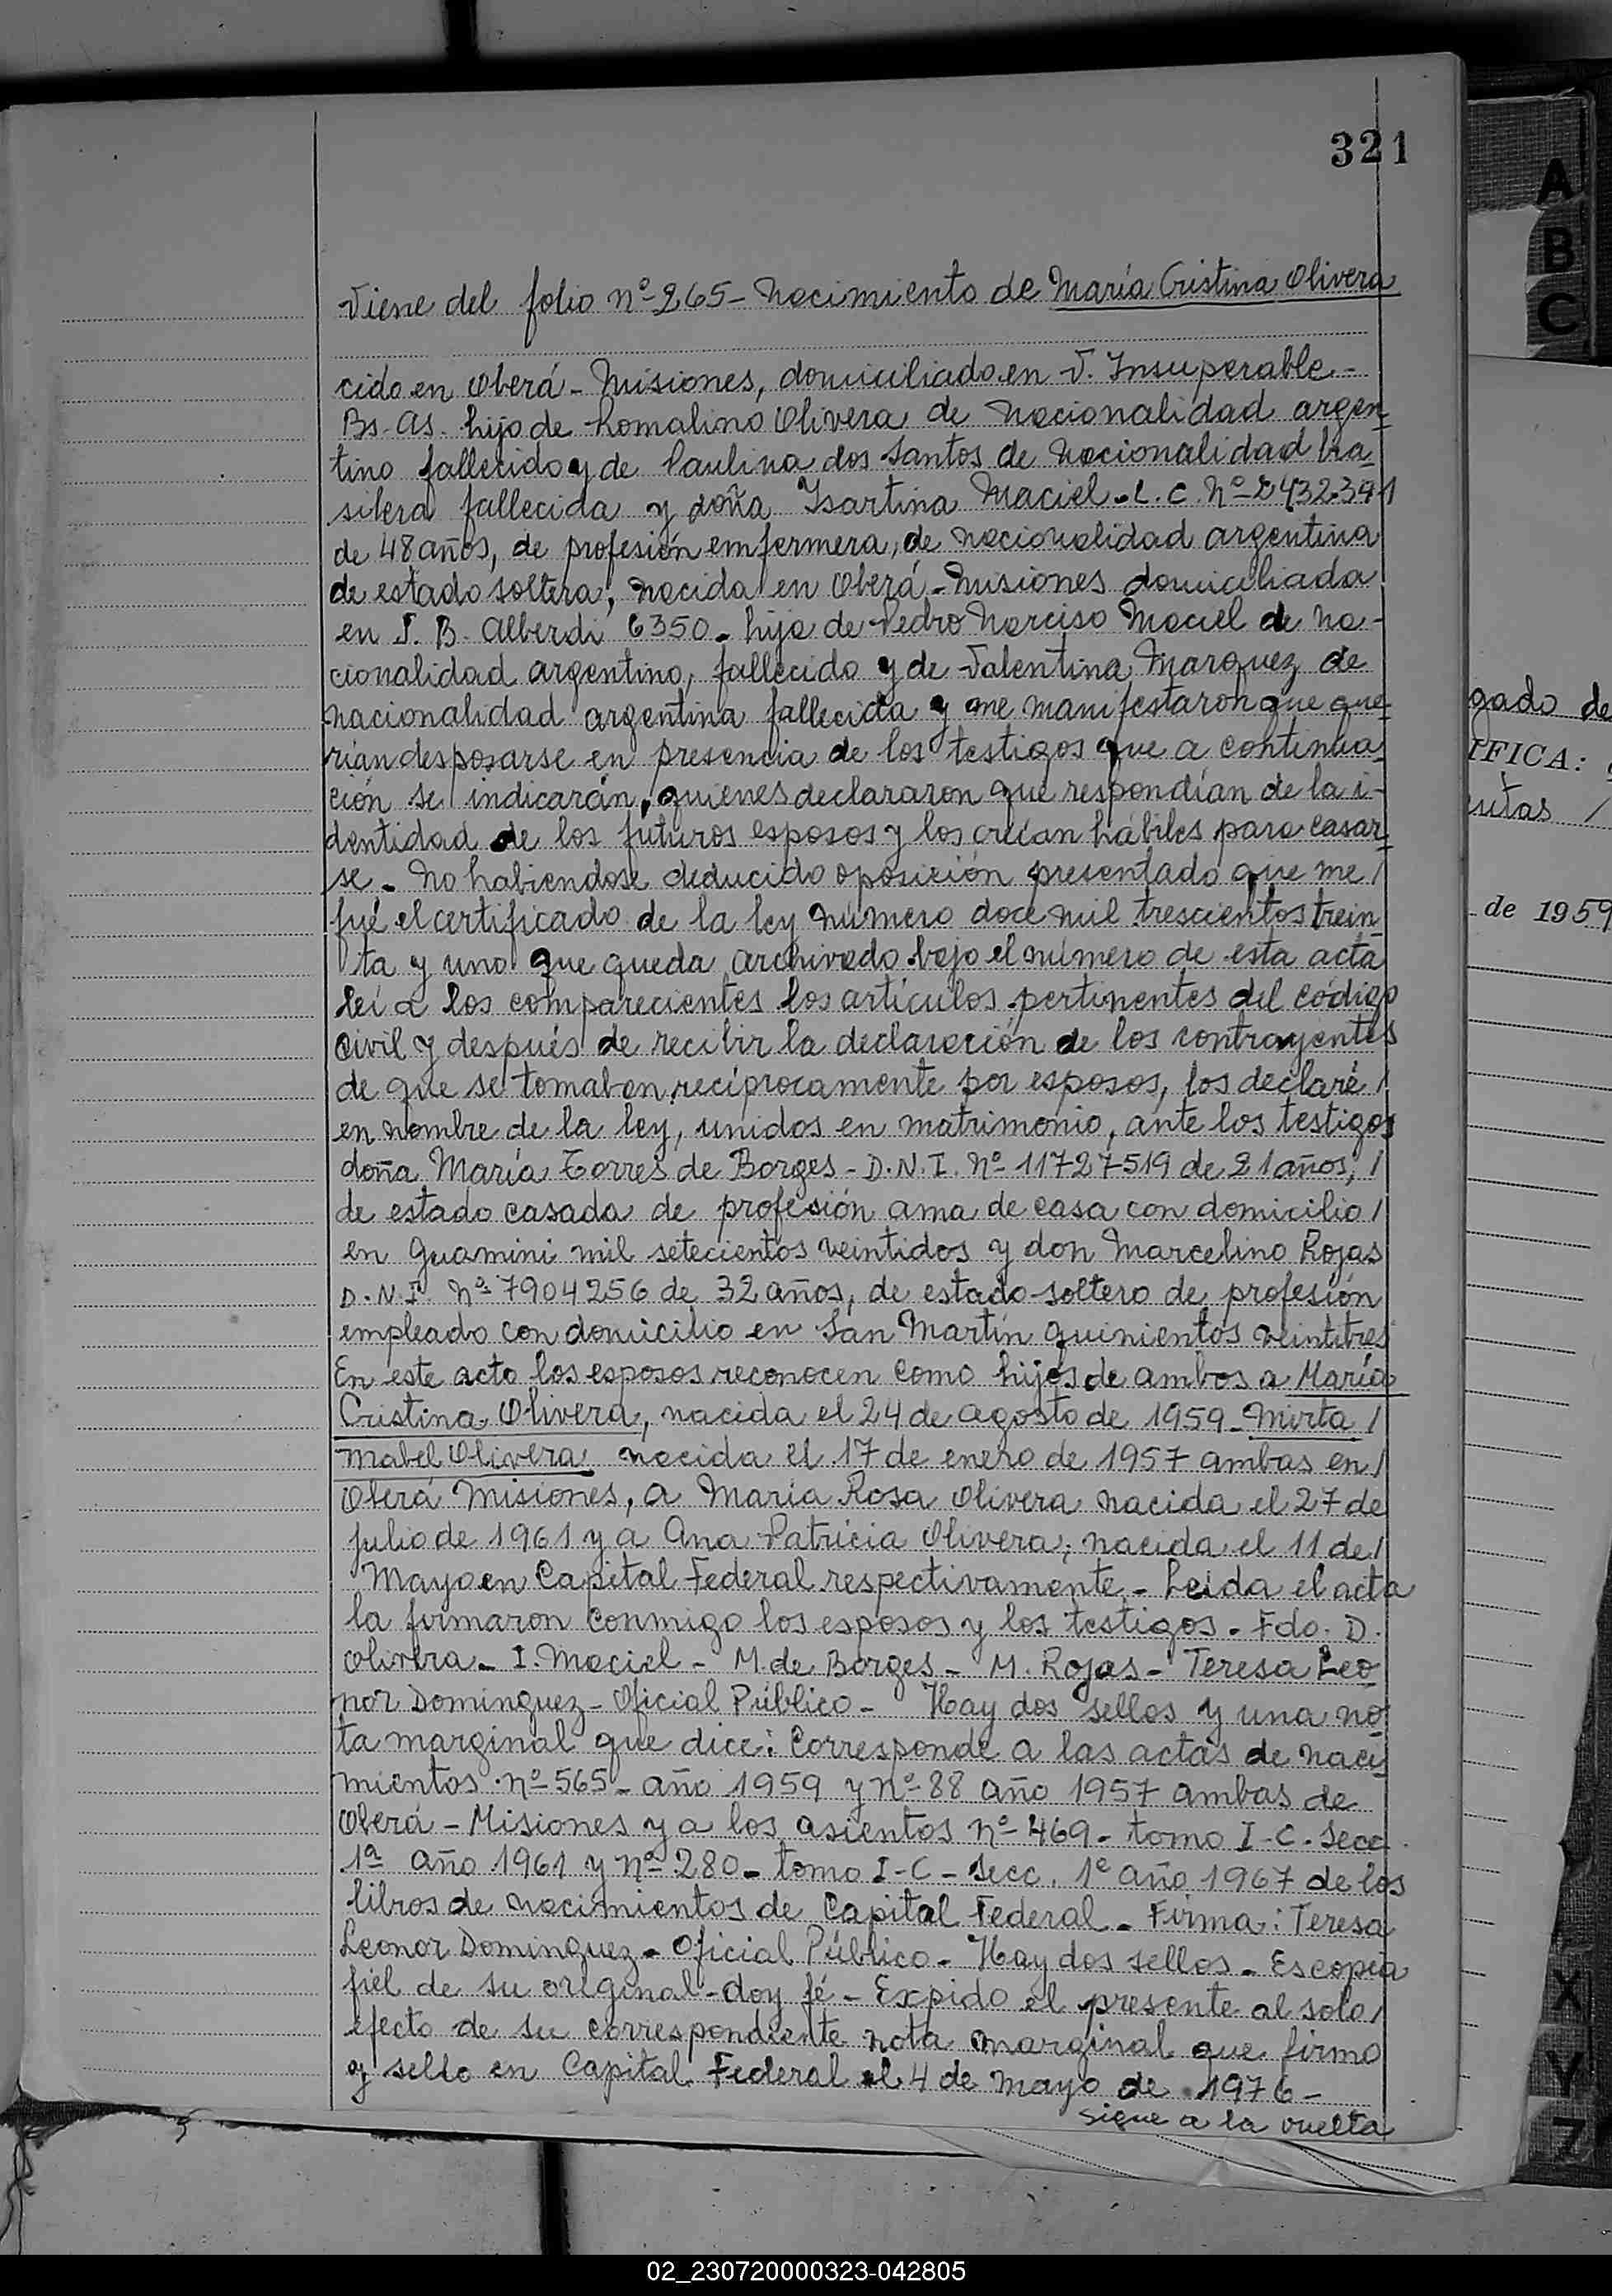 321
A
B
C
Viene del folio nº 265 - Nacimiento de María Cristina Olivera
cido en Oberá - Misiones, domiciliado en V. Insuperable -
Bs. As. hijo de Romalino Olivera de nacionalidad argen-
tino fallecido y de Paulina dos Santos de nacionalidad bra-
silera fallecida y doña Isartina Maciel - L. C. Nº 2432341
de 48 años, de profesión enfermera, de nacionalidad argentina
de estado soltera, nacida en Oberá - Misiones domiciliada
en J. B. Alberdi 6350 - hija de Pedro Narciso Maciel de na-
cionalidad argentino, fallecido y de Valentina Marquez de
nacionalidad argentina fallecida y me manifestaron que que-
rían desposarse en presencia de los testigos que a continua-
ción se indicarán, quienes declararon que respondían de la i-
dentidad de los futuros esposos y los creían hábiles para casar-
se - No habiendose deducido oposición presentado que me /
fué el certificado de la ley número doce mil trescientos trein-
ta y uno que queda archivado bajo el número de esta acta
leí a los comparecientes los artículos pertinentes del código
civil y después de recibir la declaración de los contrayentes
de que se tomaban recíprocamente por esposos, los declaré /
en nombre de la ley, unidos en matrimonio, ante los testigos
doña María Torres de Borges - D.N.I. Nº 11727519 de 21 años, /
de estado casada de profesión ama de casa con domicilio /
en Guamini mil setecientos veintidos y don Marcelino Rojas
D.N.I. Nº 7904256 de 32 años, de estado soltero de profesión
empleado con domicilio en San Martín quinientos veintitres
En este acto los esposos reconocen como hijos de ambos a María
Cristina Olivera, nacida el 24 de agosto de 1959 - Mirta /
Mabel Olivera nacida el 17 de enero de 1957 ambas en /
Oberá Misiones, a María Rosa Olivera nacida el 27 de
julio de 1961 y a Ana Patricia Olivera, nacida el 11 de /
Mayo en Capital Federal respectivamente - Leida el acta
la firmaron conmigo los esposos y los testigos - Fdo. D.
Olivera - I. Maciel - M. de Borges - M. Rojas - Teresa Leo
nor Dominguez - Oficial Público - Hay dos sellos y una no-
ta marginal que dice: Corresponde a las actas de naci-
mientos nº 565 - año 1959 y nº 88 año 1957 ambas de
Oberá - Misiones y a los asientos nº 469 - tomo I-C. Secc.
1ª año 1961 y nº 280 - tomo I-C - Secc. 1ª año 1967 de los
libros de nacimientos de Capital Federal - Firma: Teresa
Leonor Dominguez - Oficial Público - Hay dos sellos - Es copia
fiel de su original - doy fé - Expido el presente al solo /
efecto de su correspondiente nota marginal que firmo
y sello en Capital Federal el 4 de mayo de 1976 -
sigue a la vuelta
gado de
IFICA:
utas /
de 1959
X
Y
Z
02_230720000323-042805